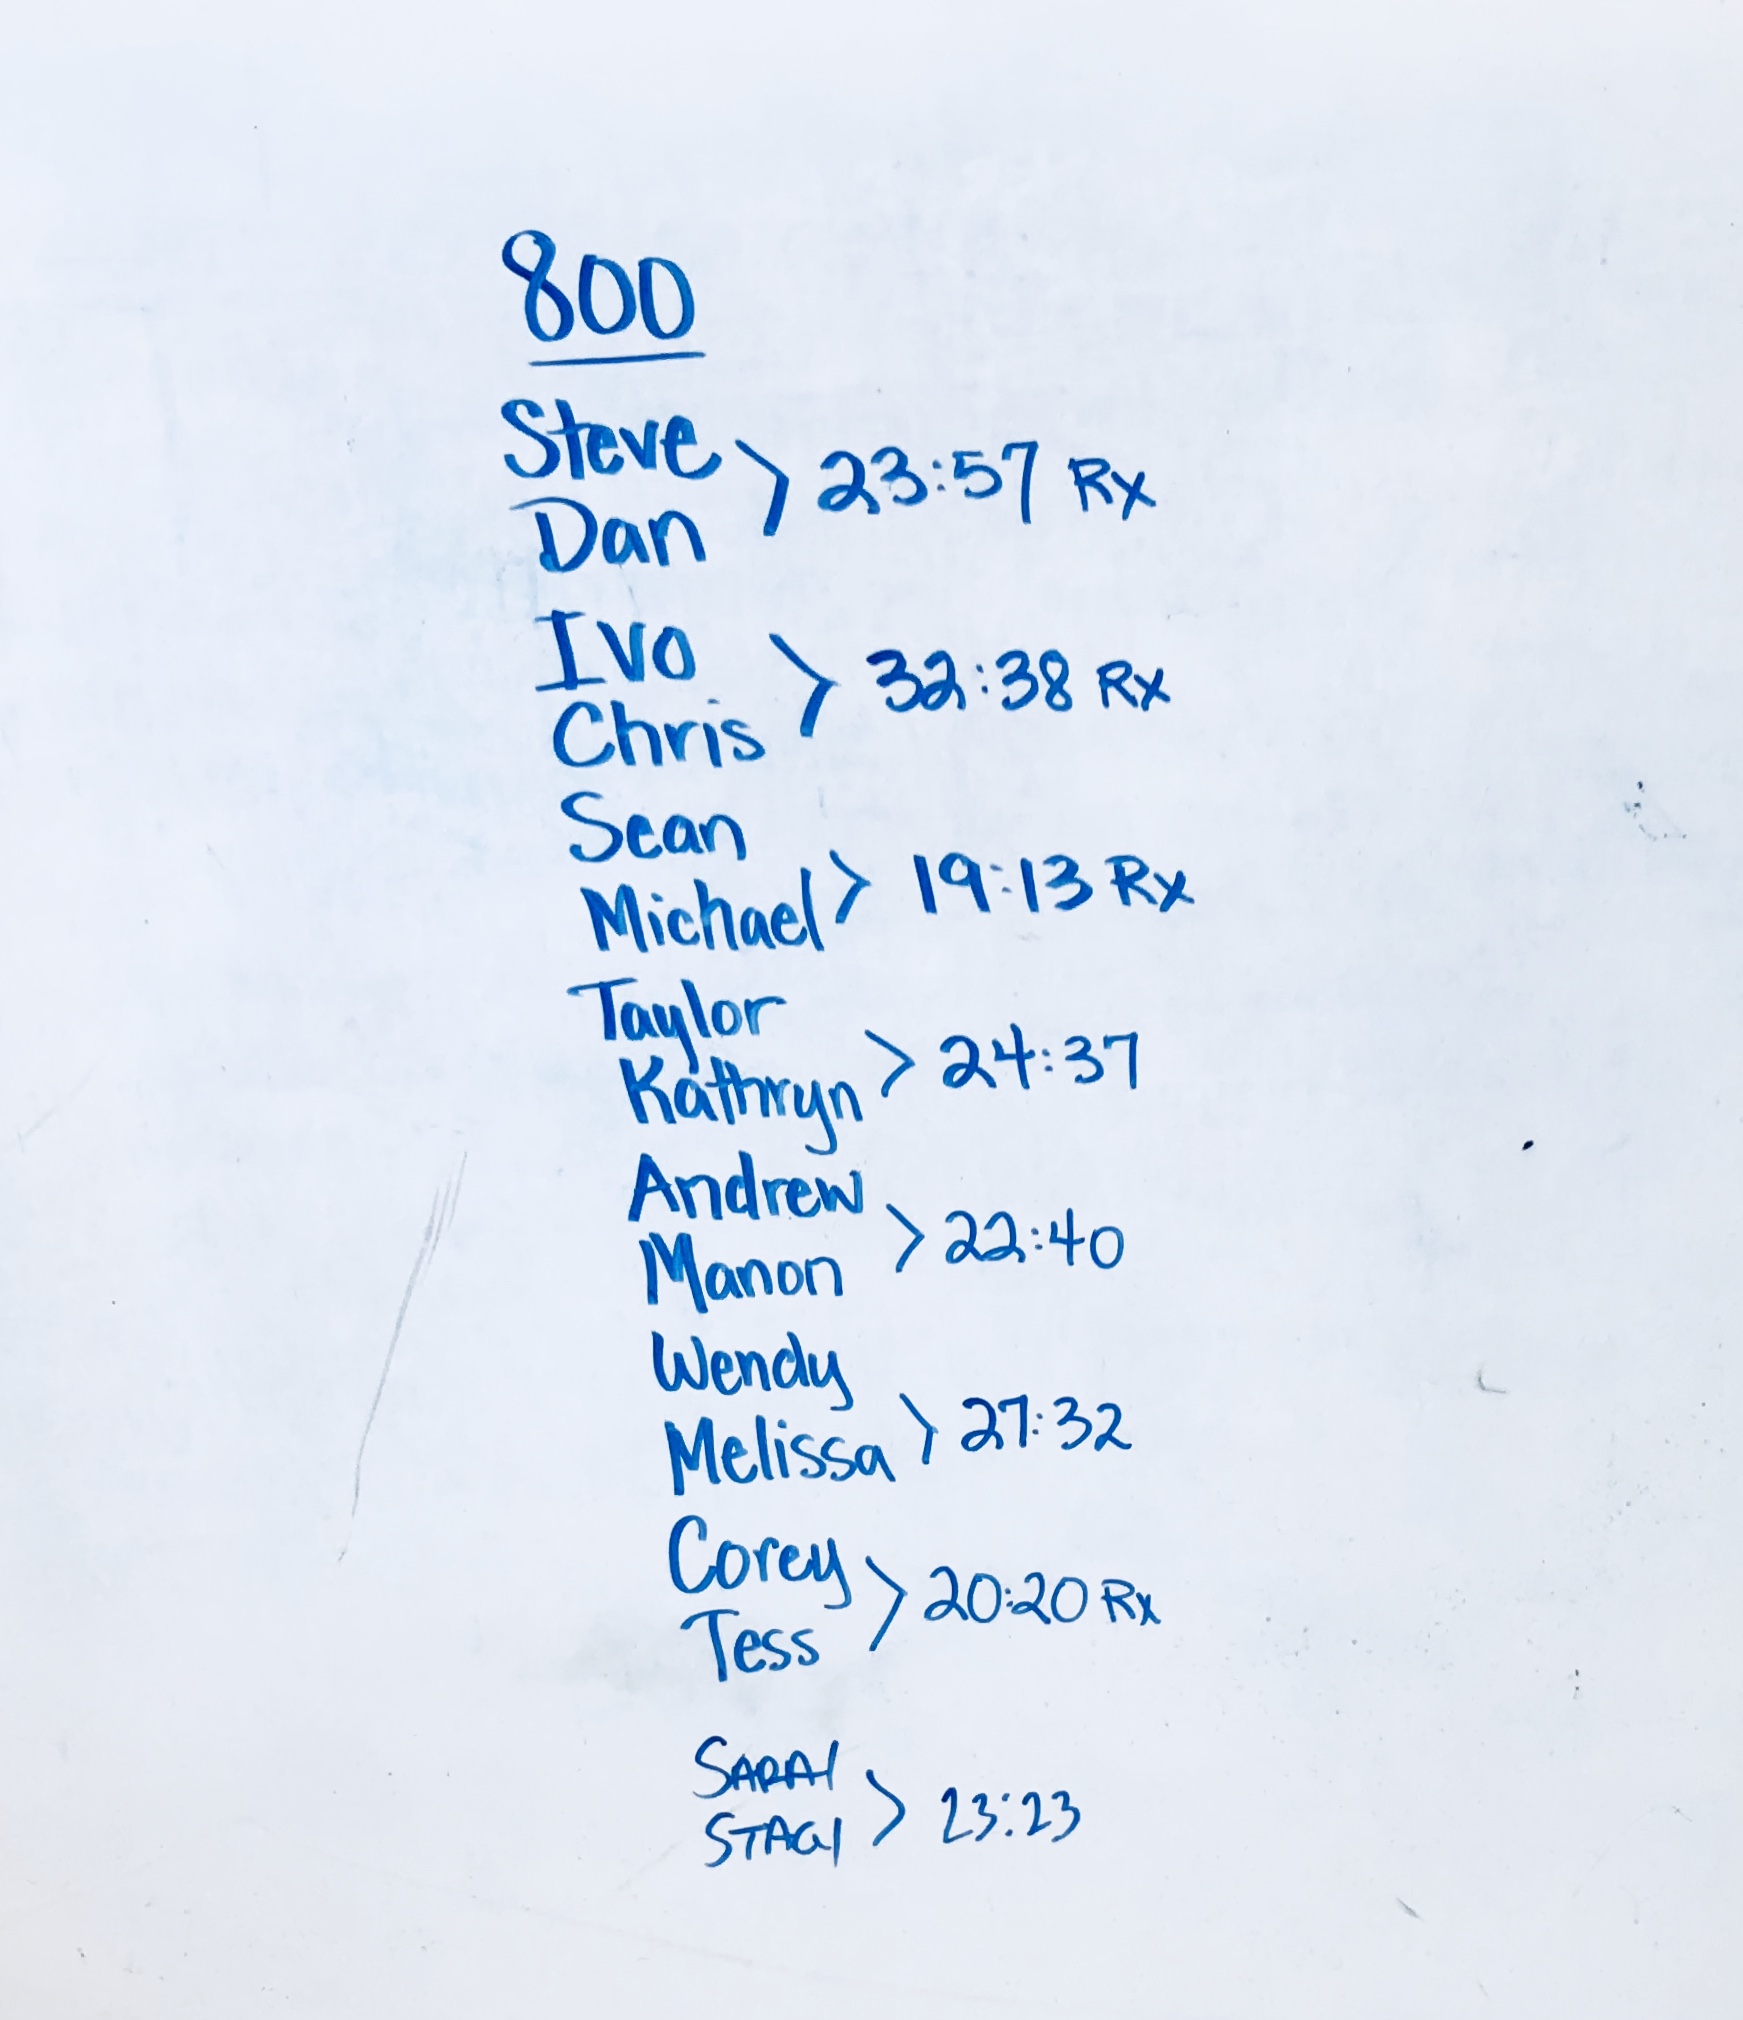 800
Steve
Dan > 23:57 Rx
Ivo
Chris > 32:38 Rx
Sean
Michael > 19:13 Rx
Taylor
Kathryn > 24:37
Andrew
Manon > 22:40
Wendy
Melissa > 27:32
Corey
Tess > 20:20 Rx
SARAH
STACI > 23:23